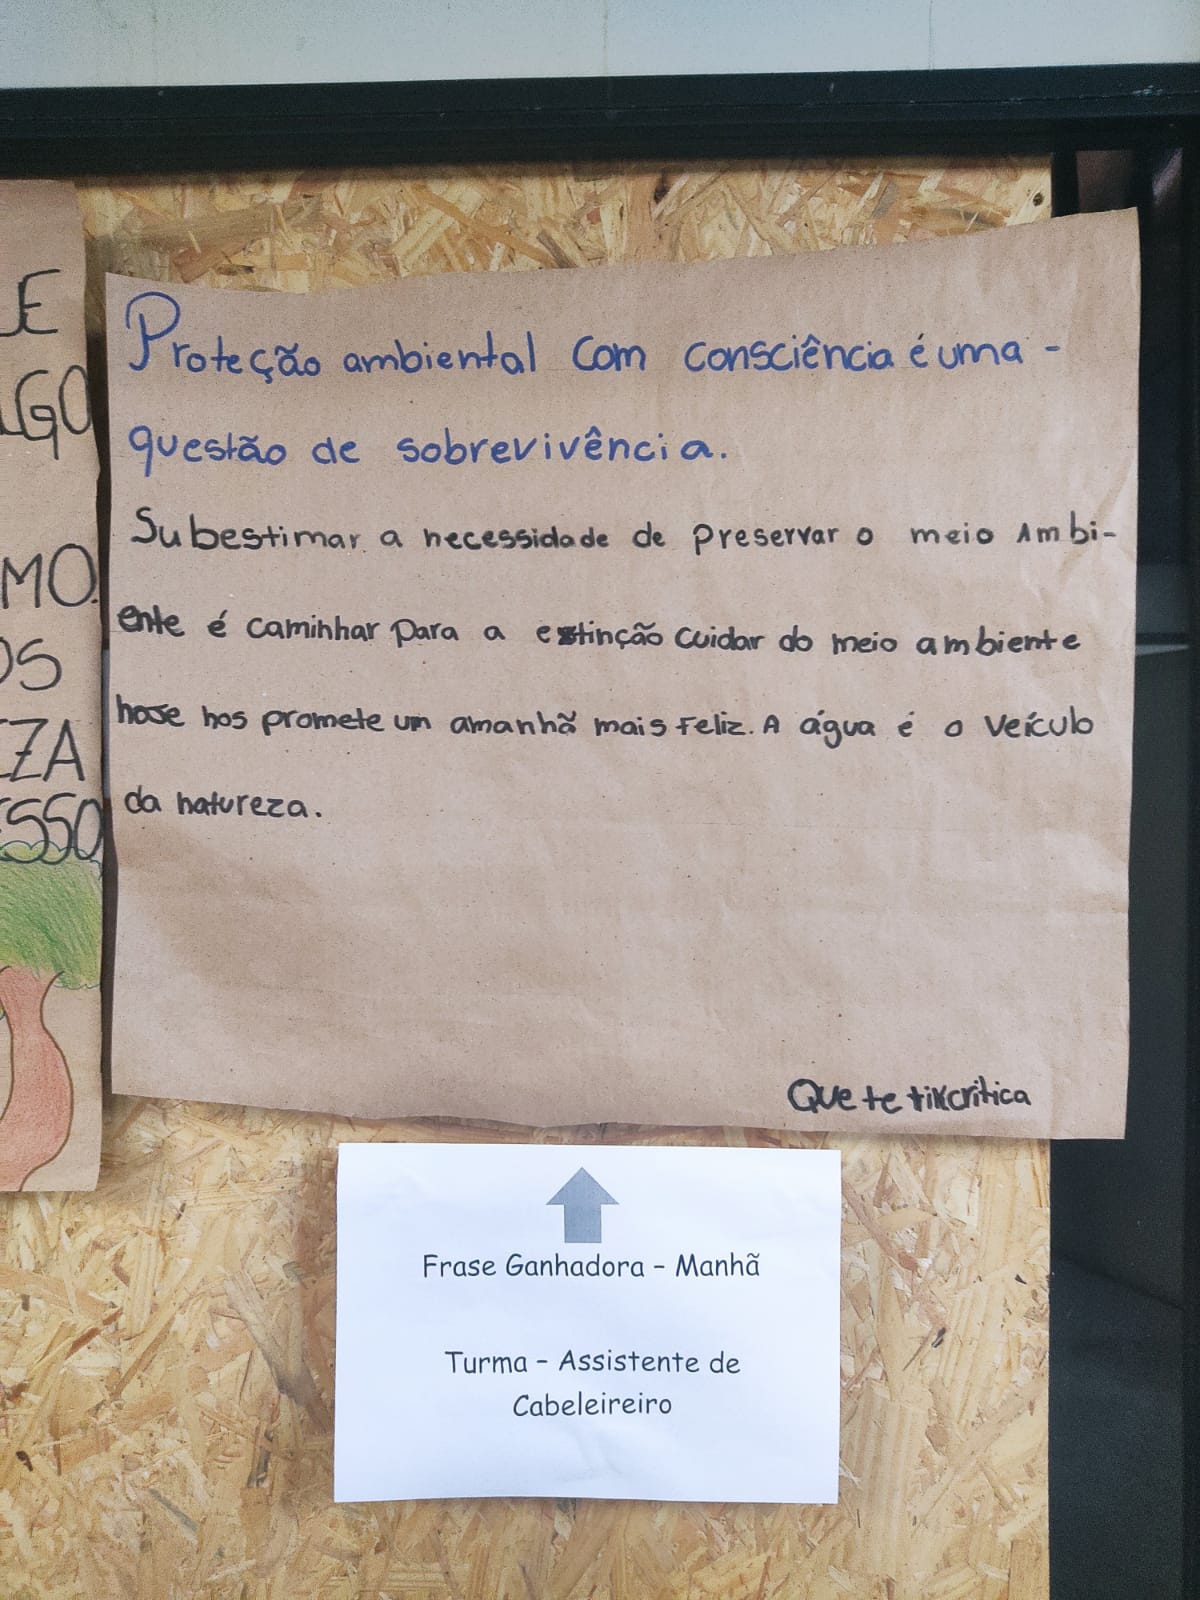 LE
LGO
MO.
OS
EZA
ESSO
Proteção ambiental com consciência é uma -
questão de sobrevivência.
Subestimar a necessidade de preservar o meio Ambi-
ente é caminhar para a extinção cuidar do meio ambiente
hoje nos promete um amanhã mais feliz. A água é o veículo
da natureza.
Que te
Frase Ganhadora – Manhã
Turma – Assistente de
Cabeleireiro